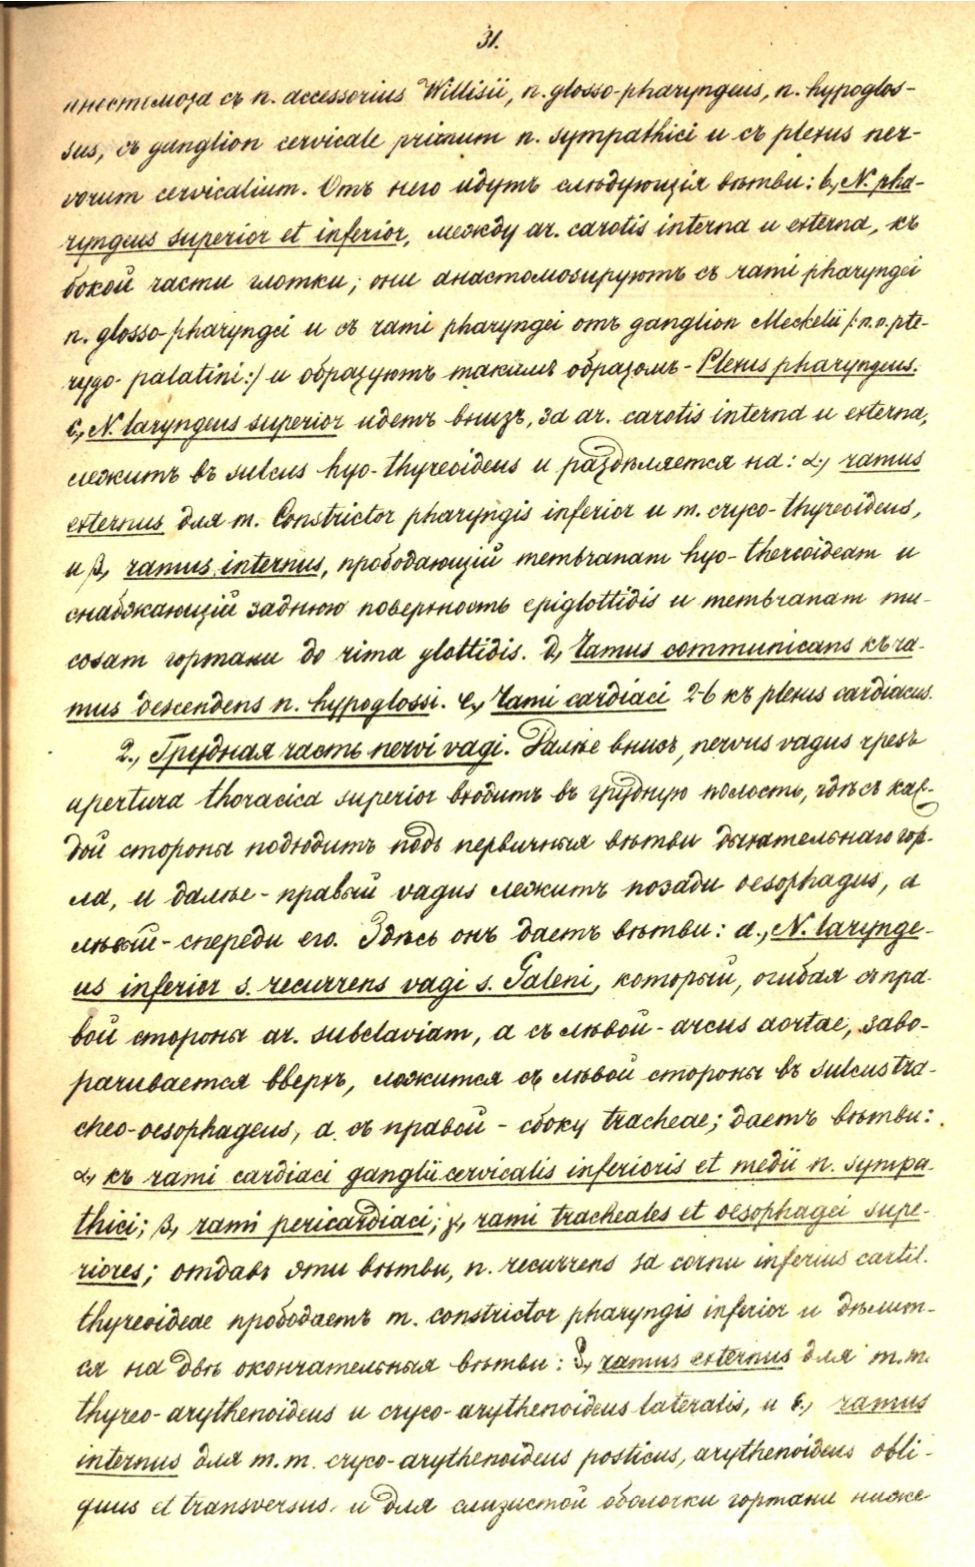 31.
анастомоза съ n. accessorius Willisii, n. glosso-pharyngeus, n. hypoglos-
sus, съ ganglion cervicale primum n. sympathici и съ plexus ner-
vorum cervicalium. Отъ него идутъ слѣдующія вѣтви: b, N. pha-
ryngeus superior et inferior, между ar. carotis interna и externa, къ
бокой части глотки; они анастомозируютъ съ rami pharyngei
n. glosso-pharyngei и съ rami pharyngei отъ ganglion Meckelii /: n.n. pte-
rygo-palatini :/ и образуютъ такимъ образомъ - Plexus pharyngeus.
c, N. laryngeus superior идетъ внизъ, за ar. carotis interna и externa,
лежитъ въ sulcus hyo-thyreoideus и раздѣляется на: α, ramus
externus для m. Constrictor pharyngis inferior и m. cryco-thyreoideus,
и β, ramus internus, прободающій membranam hyo-thereoideam и
снабжающій заднюю поверхность epiglottidis и membranam mu-
cosam гортани до rima glottidis. d, ramus communicans къ ra-
mus descendens n. hypoglossi. e, rami cardiaci 2-6 къ plexus cardiacus.
2., Грудная часть nervi vagi. Далѣе внизъ, nervus vagus чрезъ
apertura thoracica superior входитъ въ грудную полость, гдѣ съ каж-
дой стороны подходитъ подъ первичныя вѣтви дыхательнаго гор-
ла, и далѣе - правый vagus лежитъ позади oesophagus, а
лѣвый - спереди его. Здѣсь онъ даетъ вѣтви: a., N. larynge-
us inferior s. recurrens vagi s. Galeni, который, огибая съ пра-
вой стороны ar. subclaviam, а съ лѣвой - arcus aortae, заво-
рачивается вверхъ, ложится съ лѣвой стороны въ sulcus tra-
cheo-oesophageus, а съ правой - сбоку tracheae; даетъ вѣтви:
α, къ rami cardiaci ganglii cervicalis inferioris et medii n. sympa-
thici; β, rami pericardiaci; γ, rami tracheales et oesophagei supe-
riores; отдавъ эти вѣтви, n. recurrens за cornu inferius cartil.
thyreoideae прободаетъ m. constrictor pharyngis inferior и дѣлит-
ся на двѣ окончательныя вѣтви: δ, ramus externus для m.m.
thyreo-arythenoideus и cryco-arythenoideus lateralis, и ε, ramus
internus для m.m. cryco-arythenoideus posticus, arythenoideus obli-
quus et transversus и для слизистой оболочки гортани ниже